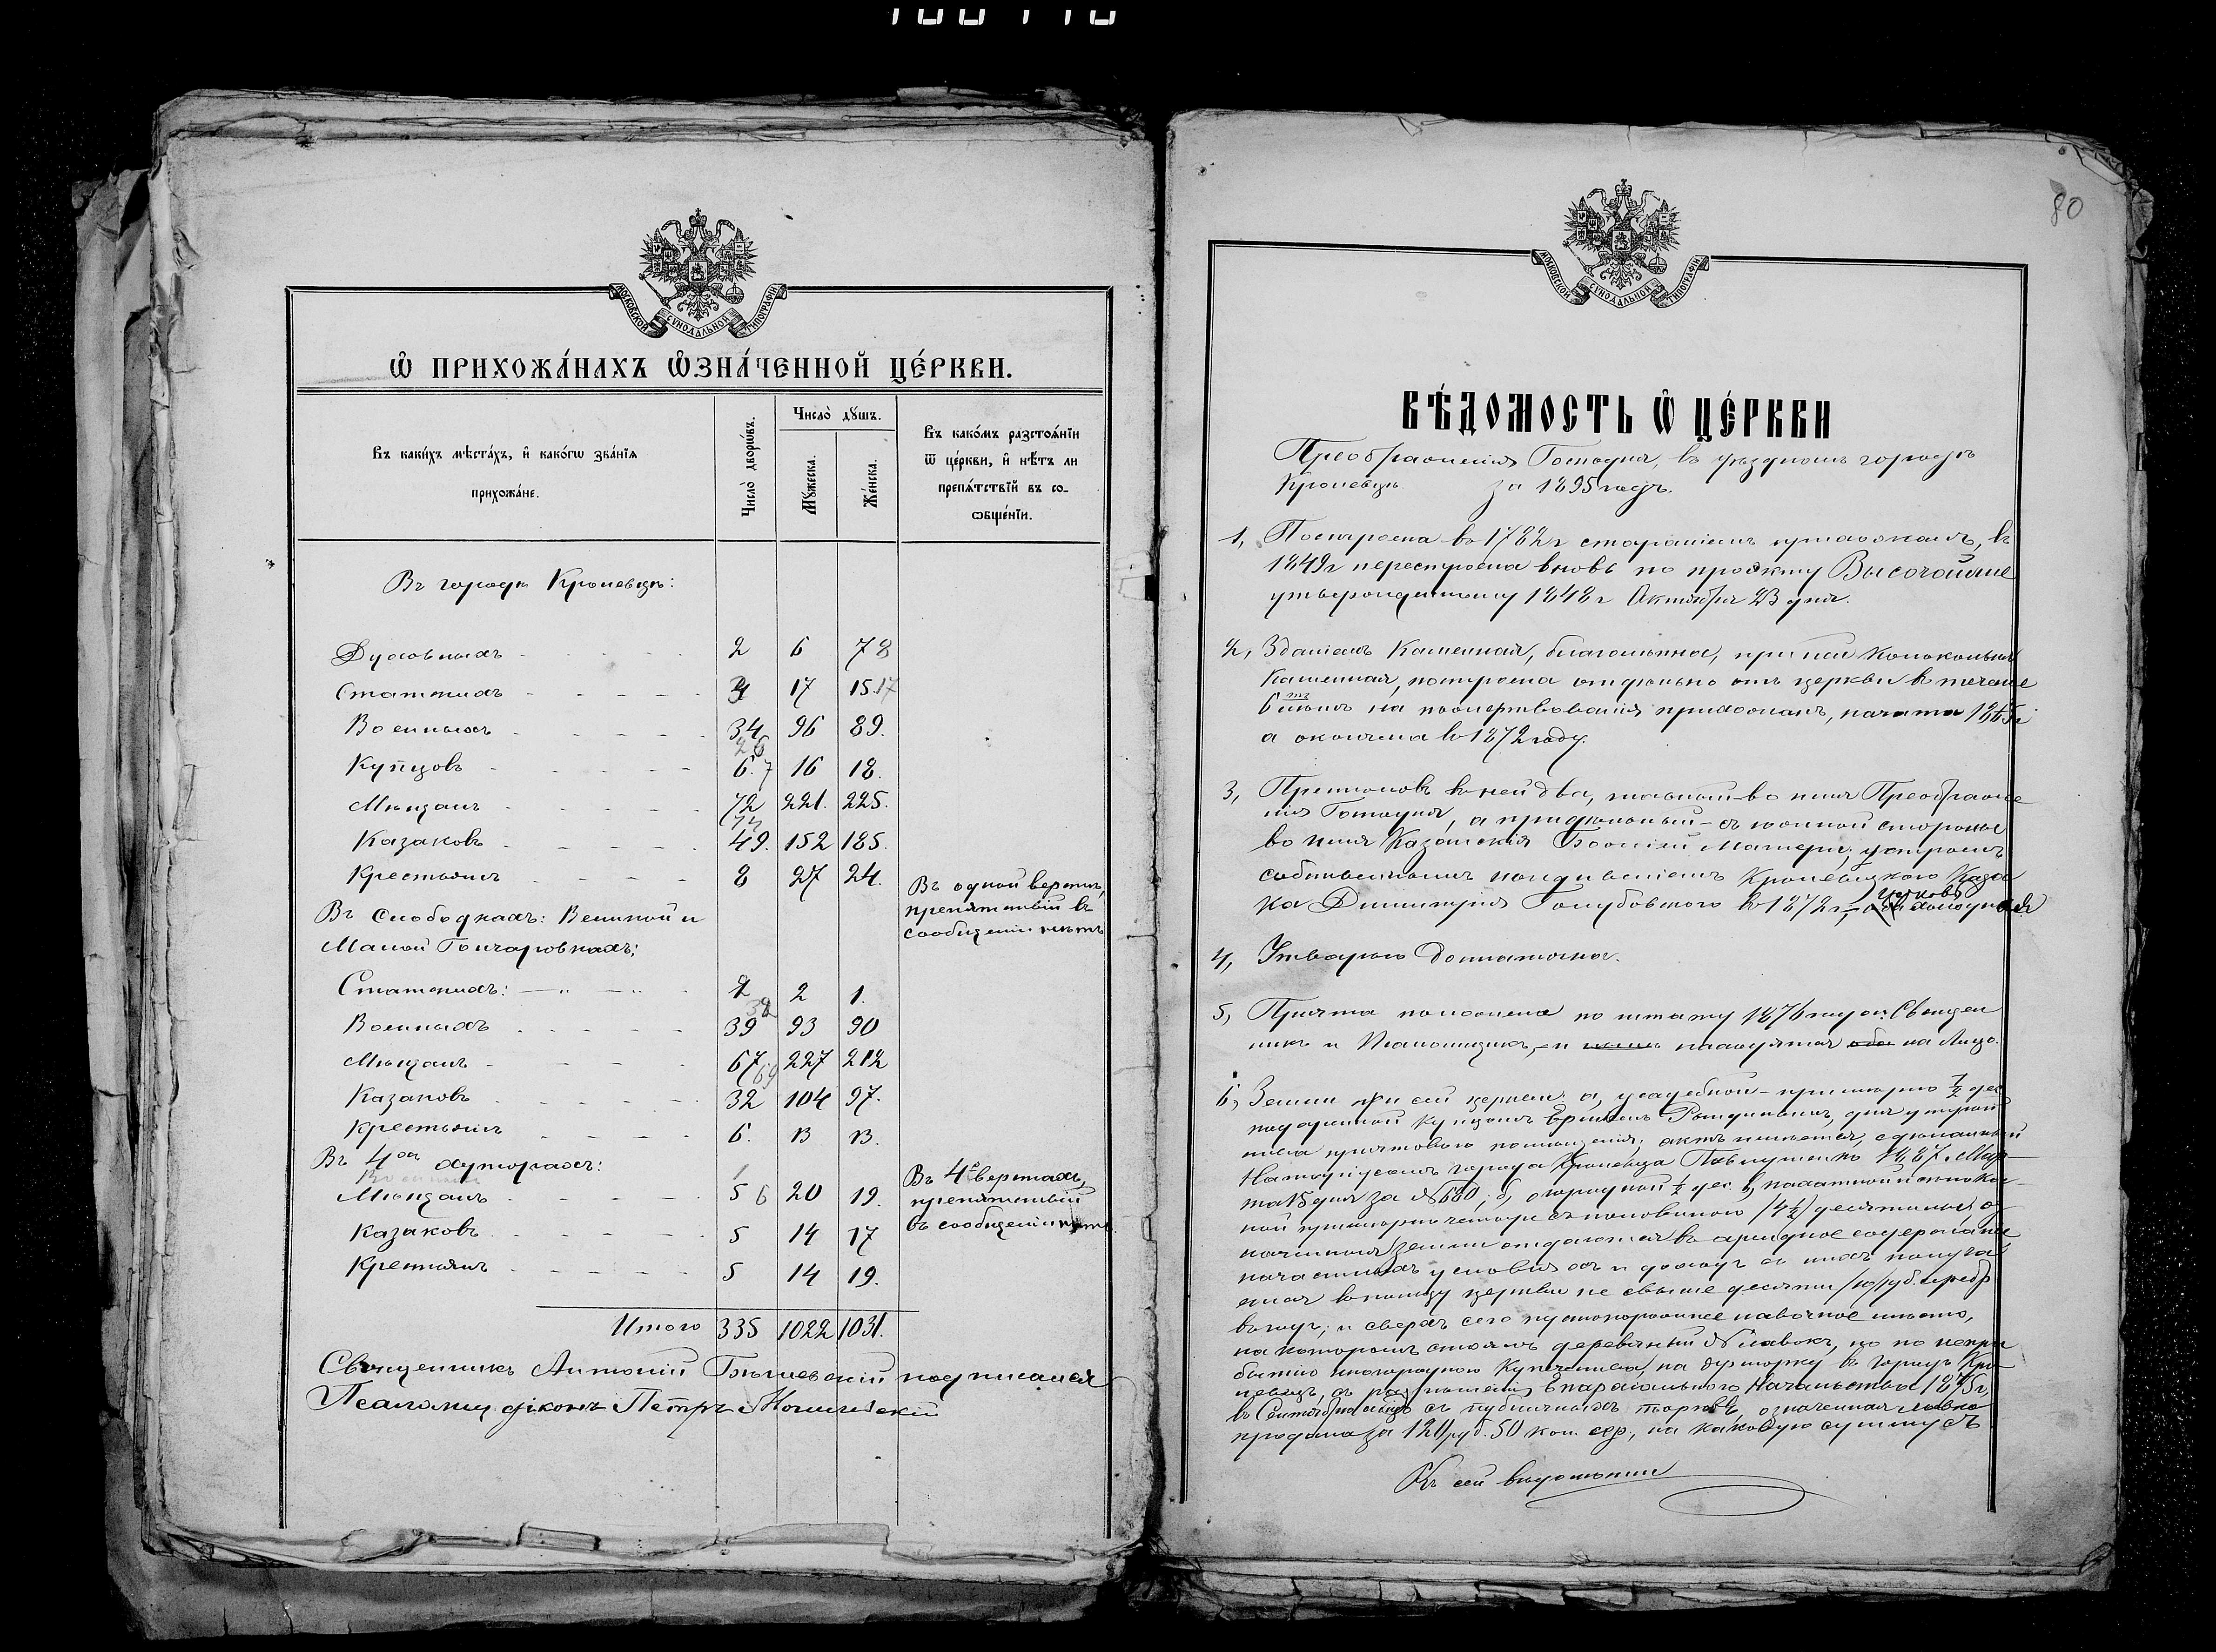 80
МОСКОВСКОЙ СУНОДАЛЬНОЙ ТИПОГРАФІИ
Ѡ ПРИХОЖА́НАХЪ ѠЗНА́ЧЕННОЙ ЦЕ́РКВИ.
Въ каки́хъ мѣста́хъ, и҆ како́гѡ зва́нїѧ
прихожа́не.
Число̀ дворѡ́въ.
Число̀ дꙋ́шъ.
Мꙋ́жеска.
Же́нска.
Въ како́мъ разстоѧ́нїи
ѿ це́ркви, и҆ нѣ́тъ ли
препѧ́тствїй въ со-
ѡбще́нїи.
Въ городѣ Кролевцѣ:
Духовныхъ 2 6 7 8
Статскихъ 17 15 17
Военныхъ 34 96 89.
26
Купцовъ 6. 7 16 18.
Мѣщанъ 72 221. 225.
Казаковъ 49. 152 185.
Крестьянъ 8 27 24.
Въ одной верстѣ,
препятствій въ
сообщеніи нѣтъ
Въ слободкахъ: Великой и
Малой Гончаровкахъ:
Статскихъ: 2 1.
Военныхъ 39 38 93 90
Мѣщанъ 67 69 227 212
Казаковъ 32 104 97.
Крестьянъ 6. 13 13.
Въ 4хъ хуторахъ:
Въ 4х верстахъ,
препятствій
въ сообщеніи нѣтъ
Мѣщанъ 5 6 20 19.
Казаковъ 5 14 17
Крестьянъ 5 14 19.
Итого 335 1022 1031.
Священникъ Антоній подписался
Псаломщ. діаконъ Петръ
МОСКОВСКОЙ СУНОДАЛЬНОЙ ТИПОГРАФІИ
ВѢ́ДОМОСТЬ Ѡ ЦЕ́РКВИ
Преображенія Господня, въ уѣздномъ городѣ
Кролевцѣ за 1895 годъ.
1, Построена въ 1782 г стараніемъ прихожанъ, въ
1849 г перестроена вновь по проэкту Высочайше
утвержденному 1848 г Октября 23 дня.
2, Зданіемъ Каменная, благолѣпная, при ней Колокольня
Каменная, построена отдѣльно отъ церкви въ теченіе
6ти лѣтъ на пожертвованія прихожанъ, начата
а окончена въ 1872 году.
3, Престоловъ въ ней два, главный во имя Преображе
нія Господня, а придѣльный съ южной стороны
во имя Казанскія Божіей Матери, устроенъ
собственнымъ иждивеніемъ Кролевецкого Каза
ка Димитрія Голубовского въ 1872 г, церковь холодная
4, Утварью достаточна.
5, Причта положено по штату 1876 года: Священ
никъ и Псаломщикъ, и находятся на Лицо.
6, Земли при сей церкви: а, усадебной примѣрно ½ дес
подаренной купцомъ для устрой
ства причтоваго помѣщенія; актъ имѣется, сдѣланный
Нотаріусомъ города Кролевца 1887 г. Мар
та 15 дня за № 680; б, огородной ½ дес. в, пахатной и сѣноко-
ной примѣрно четыре съ половиною (4½) десятины оз
наченныя земли отдаются въ арендное содержаніе
на частныхъ условіяхъ и доходъ съ нихъ получа
емый въ пользу церкви не свыше десяти (10) руб. серебр
въ годъ; и сверхъ сего пустопорожнее лавочное мѣсто,
на которомъ стоялъ деревянный лавокъ, но по непри
бытію иногороднаго Купечества на ярмарку въ городъ Кро
левецъ, съ разрѣшенія Епархіальнаго Начальства 1875 г,
въ Сентябрѣ мѣсяцѣ съ публичныхъ торговъ означенная лавка
продана за 120 руб. 50 коп. сер, на каковую сумму съ
Къ сей вѣдомости